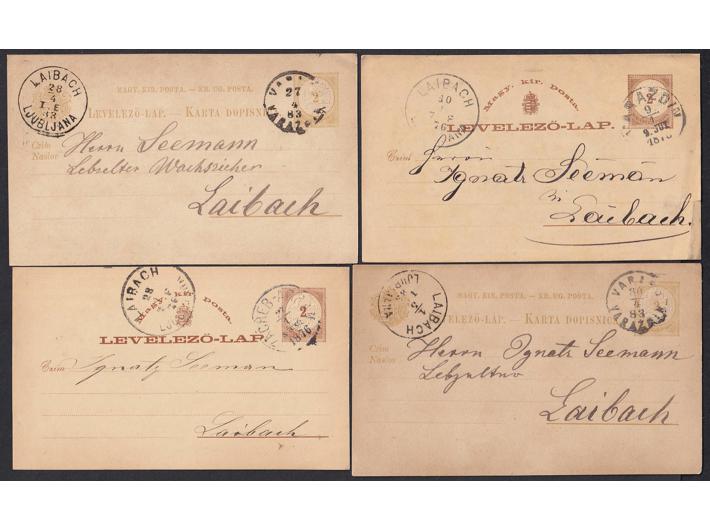 LAIBACH
28
4
I. E
83
LJUBLJANA
MAGY. KIR. POSTA. – KR. UG. POSTA.
2
27
4
83
VARAZD
LEVELEZŐ-LAP. – KARTA DOPISNICA
Czim
Naslov
Herrn Seemann
Lebzelter Wachszieher
Laibach
LAIBACH
30
76
Magy. kir. posta.
2
VARASDIN
9.
1876
LEVELEZŐ-LAP.
Czim
Herrn
Ignatz Seeman
in
Laibach.
LAIBACH
28
Magy. kir. posta.
2
1876
LEVELEZŐ-LAP
Czim
Ignatz Seeman
Laibach
LAIBACH
LJUBLJANA
1
5
MAGY. KIR. POSTA. – KR. UG. POSTA.
2
30
4
83
LEVELEZŐ-LAP. – KARTA DOPISNIC
Czim
Naslov
Herrn Ignatz Seemann
Laibach